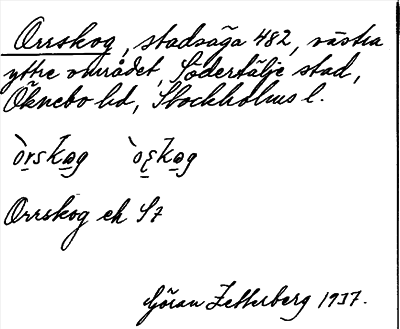 Orrskog, stadsäga 482, västra
yttre området, Södertälje stad,
Öknebo hd, Stockholms l.
`orskog `oskog
Orrskog eh S7
Göran Zetterberg 1937.